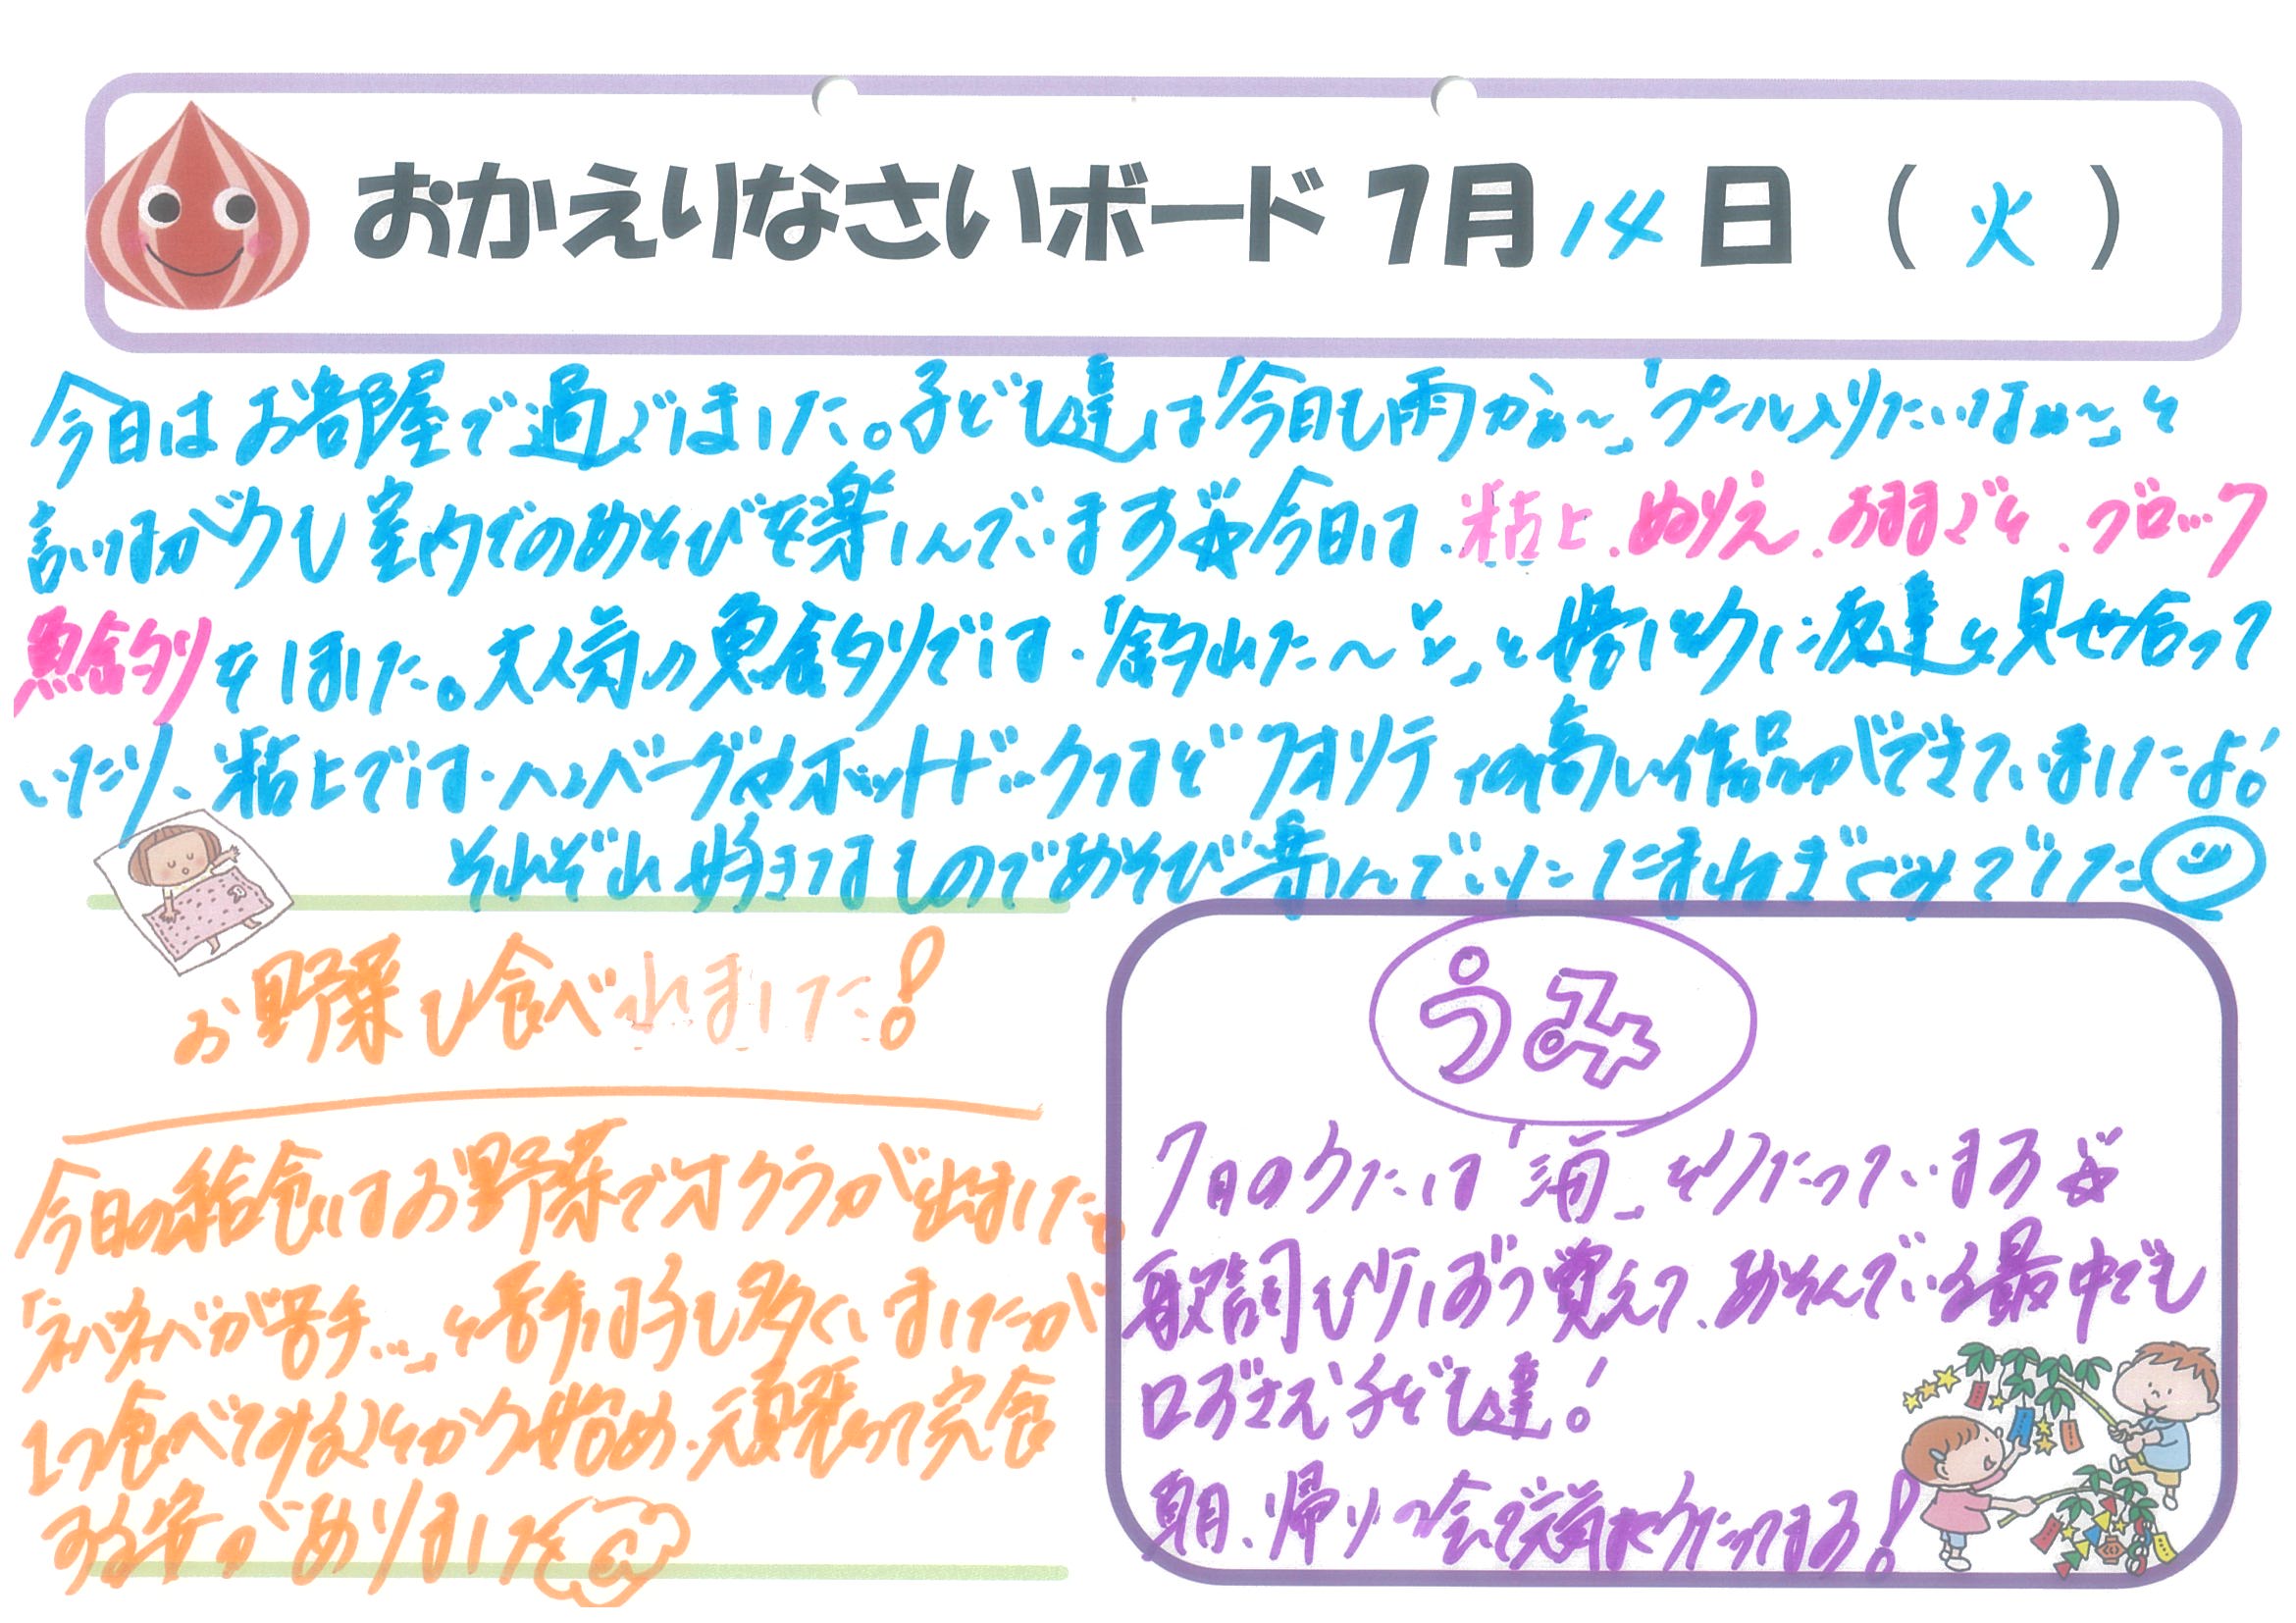 おかえりなさいボード 7月14日（火）
今日はお部屋で過ごしました。子ども達は「今日も雨かぁ～」「プール入りたいなぁ～」と
言いながらも室内でのあそびを楽しんでいます☆今日は、粘土、ぬりえ、おままごと、ブロック
魚釣りをしました。大人気の魚釣りでは、「釣れた～♡」と嬉しそうに友達と見せ合って
いたり、粘土では、ハンバーグやホットドックなどクオリティの高い作品ができていましたよ!
それぞれ好きなものであそび楽しんでいたたまねぎぐみでした
お野菜も食べれました!
今日の給食はお野菜でオクラが出ました。
「ネバネバが苦手…」と苦手な子も多くいましたが
1つ食べてみることから始め、頑張って完食
する姿がありました
うみ
7月のうたは「海」をうたっています☆
歌詞もりっぱに覚えて、あそんでいる最中でも
口ずさむ子ども達!
朝、帰りの会で元気にうたってます!